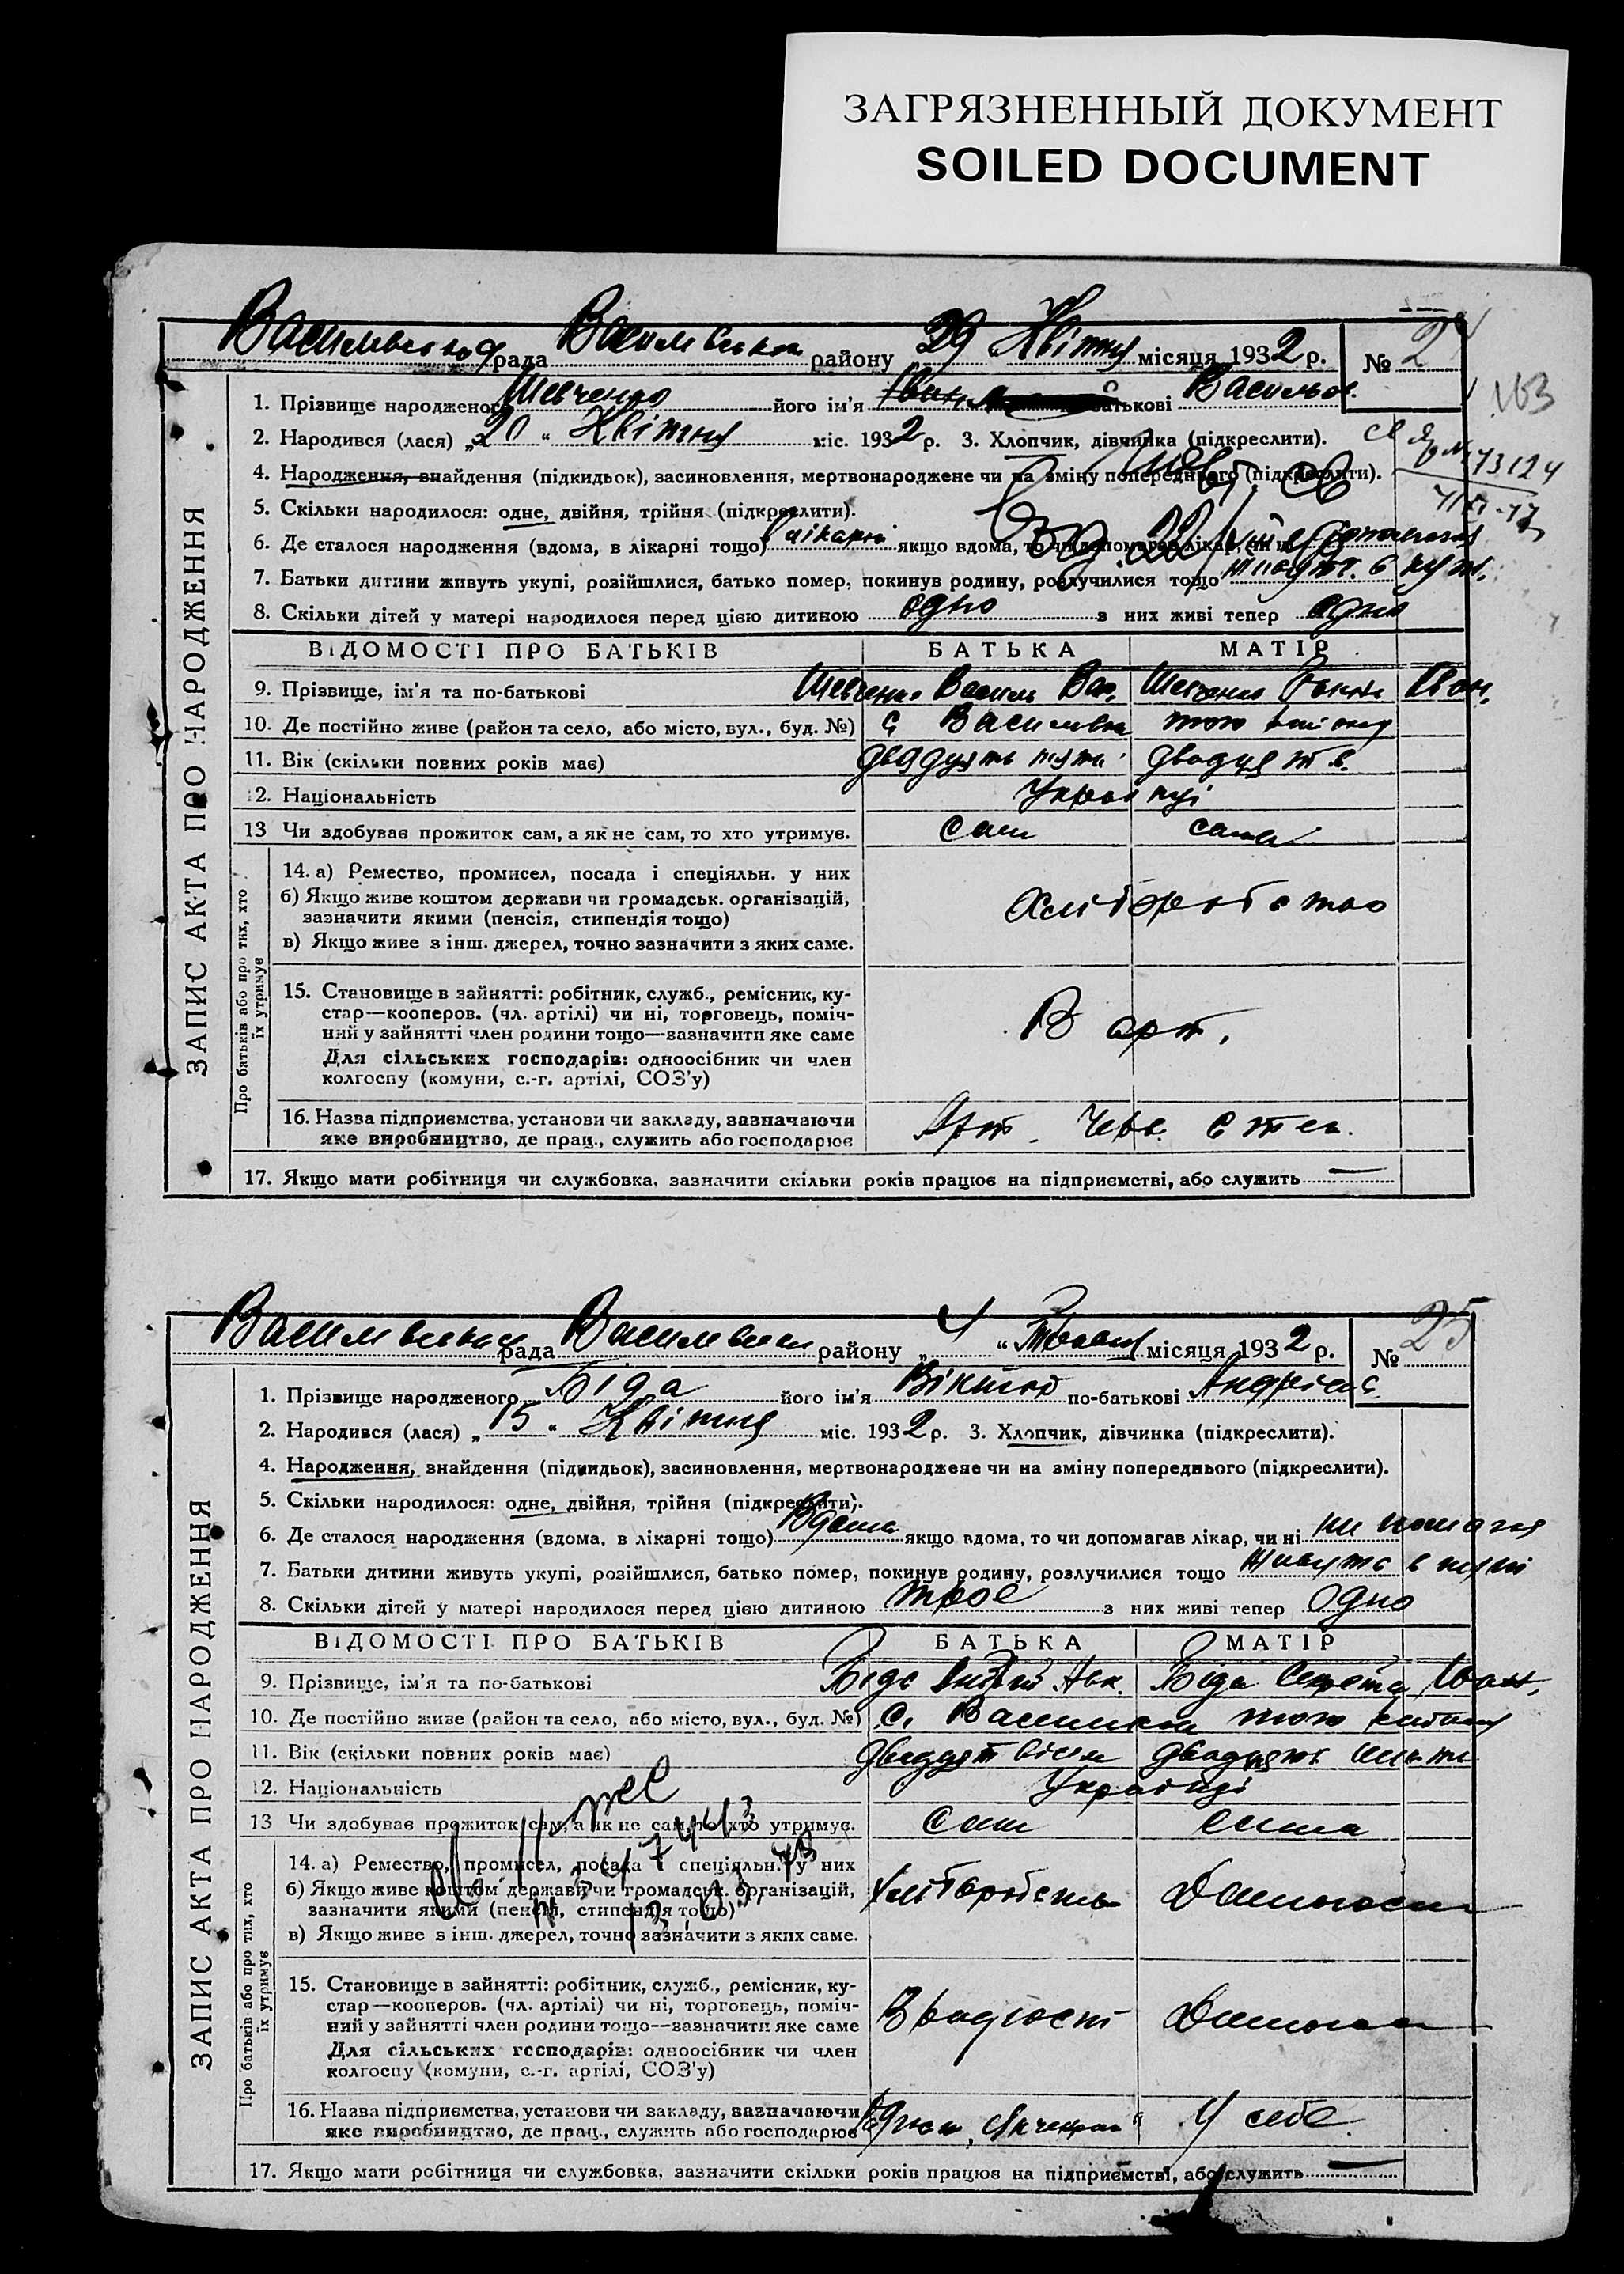 ЗАГРЯЗНЕННЫЙ ДОКУМЕНТ
SOILED DOCUMENT
Васильвська рада Васильвськ району 29 Квітня місяця 1932 р. № 24
163
1. Прізвище народженого Шевченко його ім'я Іван по-батькові Васильов.
2. Народився (лася) „20“ Квітня міс. 1932 р. 3. Хлопчик, дівчинка (підкреслити).
4. Народження, знайдення (підкидьок), засиновлення, мертвонароджене чи на зміну попереднього (підкреслити).
5. Скільки народилося: одне, двійня, трійня (підкреслити).
6. Де сталося народження (вдома, в лікарні тощо) лікарні якщо вдома, то чи допомагав лікар, чи ні
7. Батьки дитини живуть укупі, розійшлися, батько помер, покинув родину, розлучилися тощо живуть в куп.
8. Скільки дітей у матері народилося перед цією дитиною одно з них живі тепер одно
ЗАПИС АКТА ПРО НАРОДЖЕННЯ
ВІДОМОСТІ ПРО БАТЬКІВ БАТЬКА МАТІР
9. Прізвище, ім'я та по-батькові Шевченко Василь Вас. Шевченко Іван.
10. Де постійно живе (район та село, або місто, вул., буд. №) с Василівка того району
11. Вік (скільки повних років має) двадцять пять двадцять.
12. Національність Українці
13 Чи здобував прожиток сам, а як не сам, то хто утримує. сам сама
Про батьків або про тих, хто їх утримує
14. а) Ремество, промисел, посада і спеціяльн. у них
б) Якщо живе коштом держави чи громадськ. організацій,
зазначити якими (пенсія, стипендія тощо) Хліборобство
в) Якщо живе з інш. джерел, точно зазначити з яких саме.
15. Становище в зайнятті: робітник, служб., ремісник, ку-
стар—кооперов. (чл. артілі) чи ні, торговець, поміч-
ний у зайнятті член родини тощо—зазначити яке саме В арт.
Для сільських господарів: одноосібник чи член
колгоспу (комуни, с.-г. артілі, СОЗ'у)
16. Назва підприємства, установи чи закладу, зазначаючи
яке виробництво, де прац., служить або господарює Арт. Черв. степ.
17. Якщо мати робітниця чи службовка, зазначити скільки років працює на підприємстві, або служить —
Васильвська рада Васильвськ району „4“ Травня місяця 1932 р. № 25
1. Прізвище народженого Біда його ім'я Віктор по-батькові Андріє
2. Народився (лася) „15“ Квітня міс. 1932 р. 3. Хлопчик, дівчинка (підкреслити).
4. Народження, знайдення (підкидьок), засиновлення, мертвонароджене чи на зміну попереднього (підкреслити).
5. Скільки народилося: одне, двійня, трійня (підкреслити).
6. Де сталося народження (вдома, в лікарні тощо) Вдома якщо вдома, то чи допомагав лікар, чи ні
7. Батьки дитини живуть укупі, розійшлися, батько помер, покинув родину, розлучилися тощо живуть в купі
8. Скільки дітей у матері народилося перед цією дитиною троє з них живі тепер одно
ЗАПИС АКТА ПРО НАРОДЖЕННЯ
ВІДОМОСТІ ПРО БАТЬКІВ БАТЬКА МАТІР
9. Прізвище, ім'я та по-батькові Біда Андрій Біда Іван.
10. Де постійно живе (район та село, або місто, вул., буд. №) с. Василівка того району
11. Вік (скільки повних років має) двадцят вісім двадцять
12. Національність Українці
13 Чи здобував прожиток сам, а як не сам, то хто утримує. сам сама
Про батьків або про тих, хто їх утримує
14. а) Ремество, промисел, посада і спеціяльн. у них
б) Якщо живе коштом держави чи громадськ. організацій,
зазначити якими (пенсія, стипендія тощо) Хліборобств Домогосп
в) Якщо живе з інш. джерел, точно зазначити з яких саме.
15. Становище в зайнятті: робітник, служб., ремісник, ку-
стар—кооперов. (чл. артілі) чи ні, торговець, поміч-
ний у зайнятті член родини тощо—зазначити яке саме В радгоспі
Для сільських господарів: одноосібник чи член
колгоспу (комуни, с.-г. артілі, СОЗ'у)
16. Назва підприємства, установи чи закладу, зазначаючи
яке виробництво, де прац., служить або господарює У себе
17. Якщо мати робітниця чи службовка, зазначити скільки років працює на підприємстві, або служить —